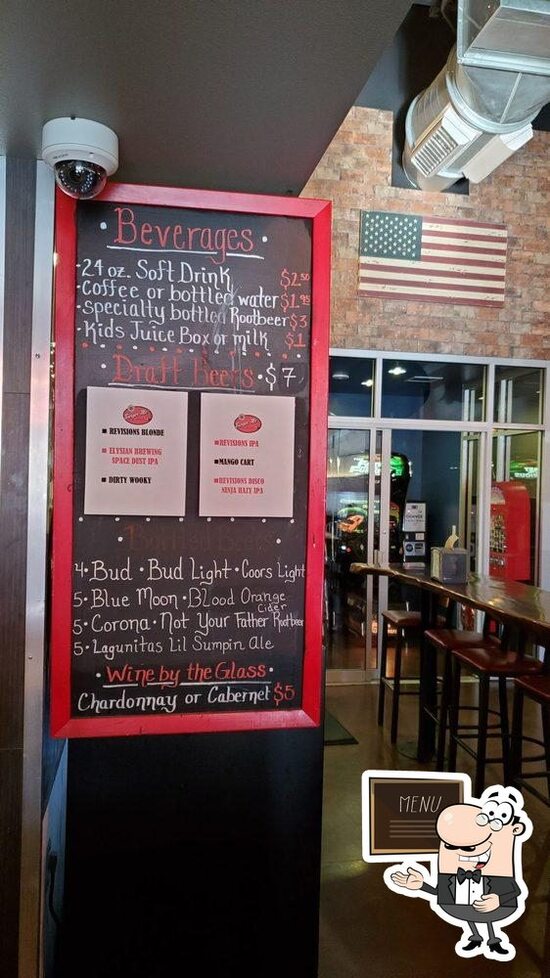 Beverages
24 oz. Soft Drink $2.50
coffee or bottled water $1.95
specialty bottled Rootbeer $3
Kids Juice Box or milk $1
Draft Beers $7
REVISIONS BLONDE
ELYSIAN BREWING
SPACE DUST IPA
DIRTY WOOKY
REVISIONS IPA
MANGO CART
REVISIONS DISCO
NINJA HAZY IPA
4 • Bud • Bud Light • Coors Light
5 • Blue Moon • Blood Orange
Cider
5 • Corona • Not Your Father Rootbeer
5 • Lagunitas Lil Sumpin Ale
Wine by the Glass
Chardonnay or Cabernet $5
MENU